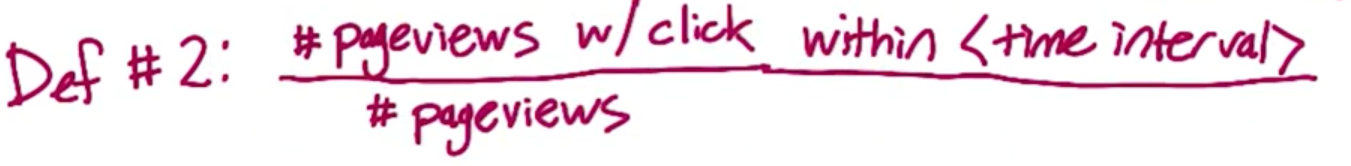 Def #2: # pageviews w/ click within <time interval>
# pageviews